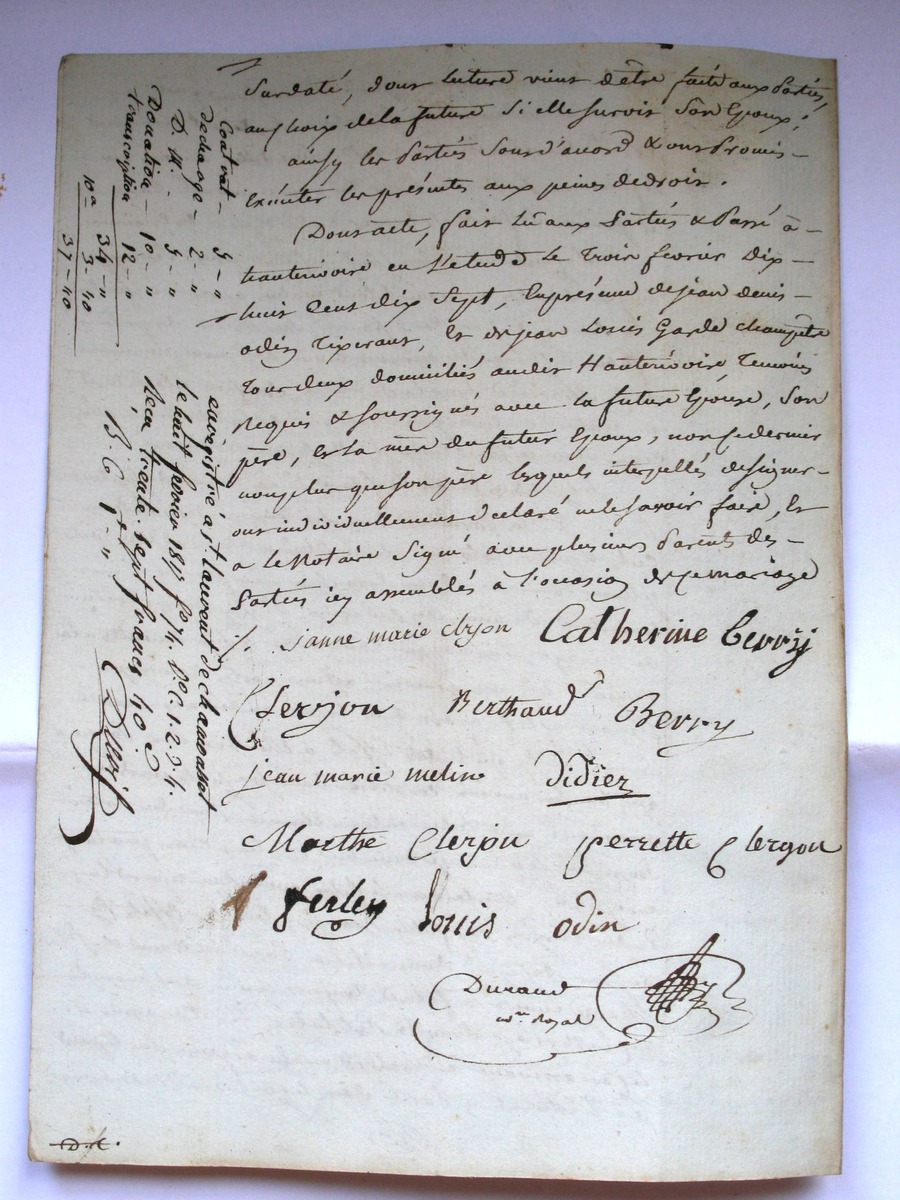 Sus daté, dont lecture vient d'être faite aux Parties,
au choix de la future Si elle survit Son Epoux;
ainsy les Parties Sont d'accord & ont Promis
exécuter les présentes aux peines de droit.
Dont acte, fait lû aux Parties & Passé à
hauterivoire en L'etude le Trois fevrier Dix
huit Cent dix Sept, En présence de jean denis
odin Tixerant, Et de jean Louis Garde champetre
Tous deux domiciliés audit Hauterivoire Temoins
Requis & soussignés avec la future Epouse, Son
père, Et la mère du futur Epoux, non ce dernier
non plus que son père lesquels interpellés de signer
ont individuellement déclaré ne le savoir faire, Et
a le Notaire Signé avec plusieurs Parents des
Parties icy assemblés à l'occasion de ce mariage
janne marie clerjon Catherine Berry
Clerjon Berthaud Berry
jean marie melin Didier
Marthe Clerjon perrette Clergon
ferley louis odin
Durand
no.re Royal
Contrat 5 "
decharge 2 "
D. M. 5 "
Donation 10 "
transcription 12 "
34 "
10e 3 40
37 40
enregistré à St. laurent de chamousset
le huit fevrier 1817 fo. 74. Vo. C. 1. 2. 3. 4.
Reçu trente sept francs 40 c.